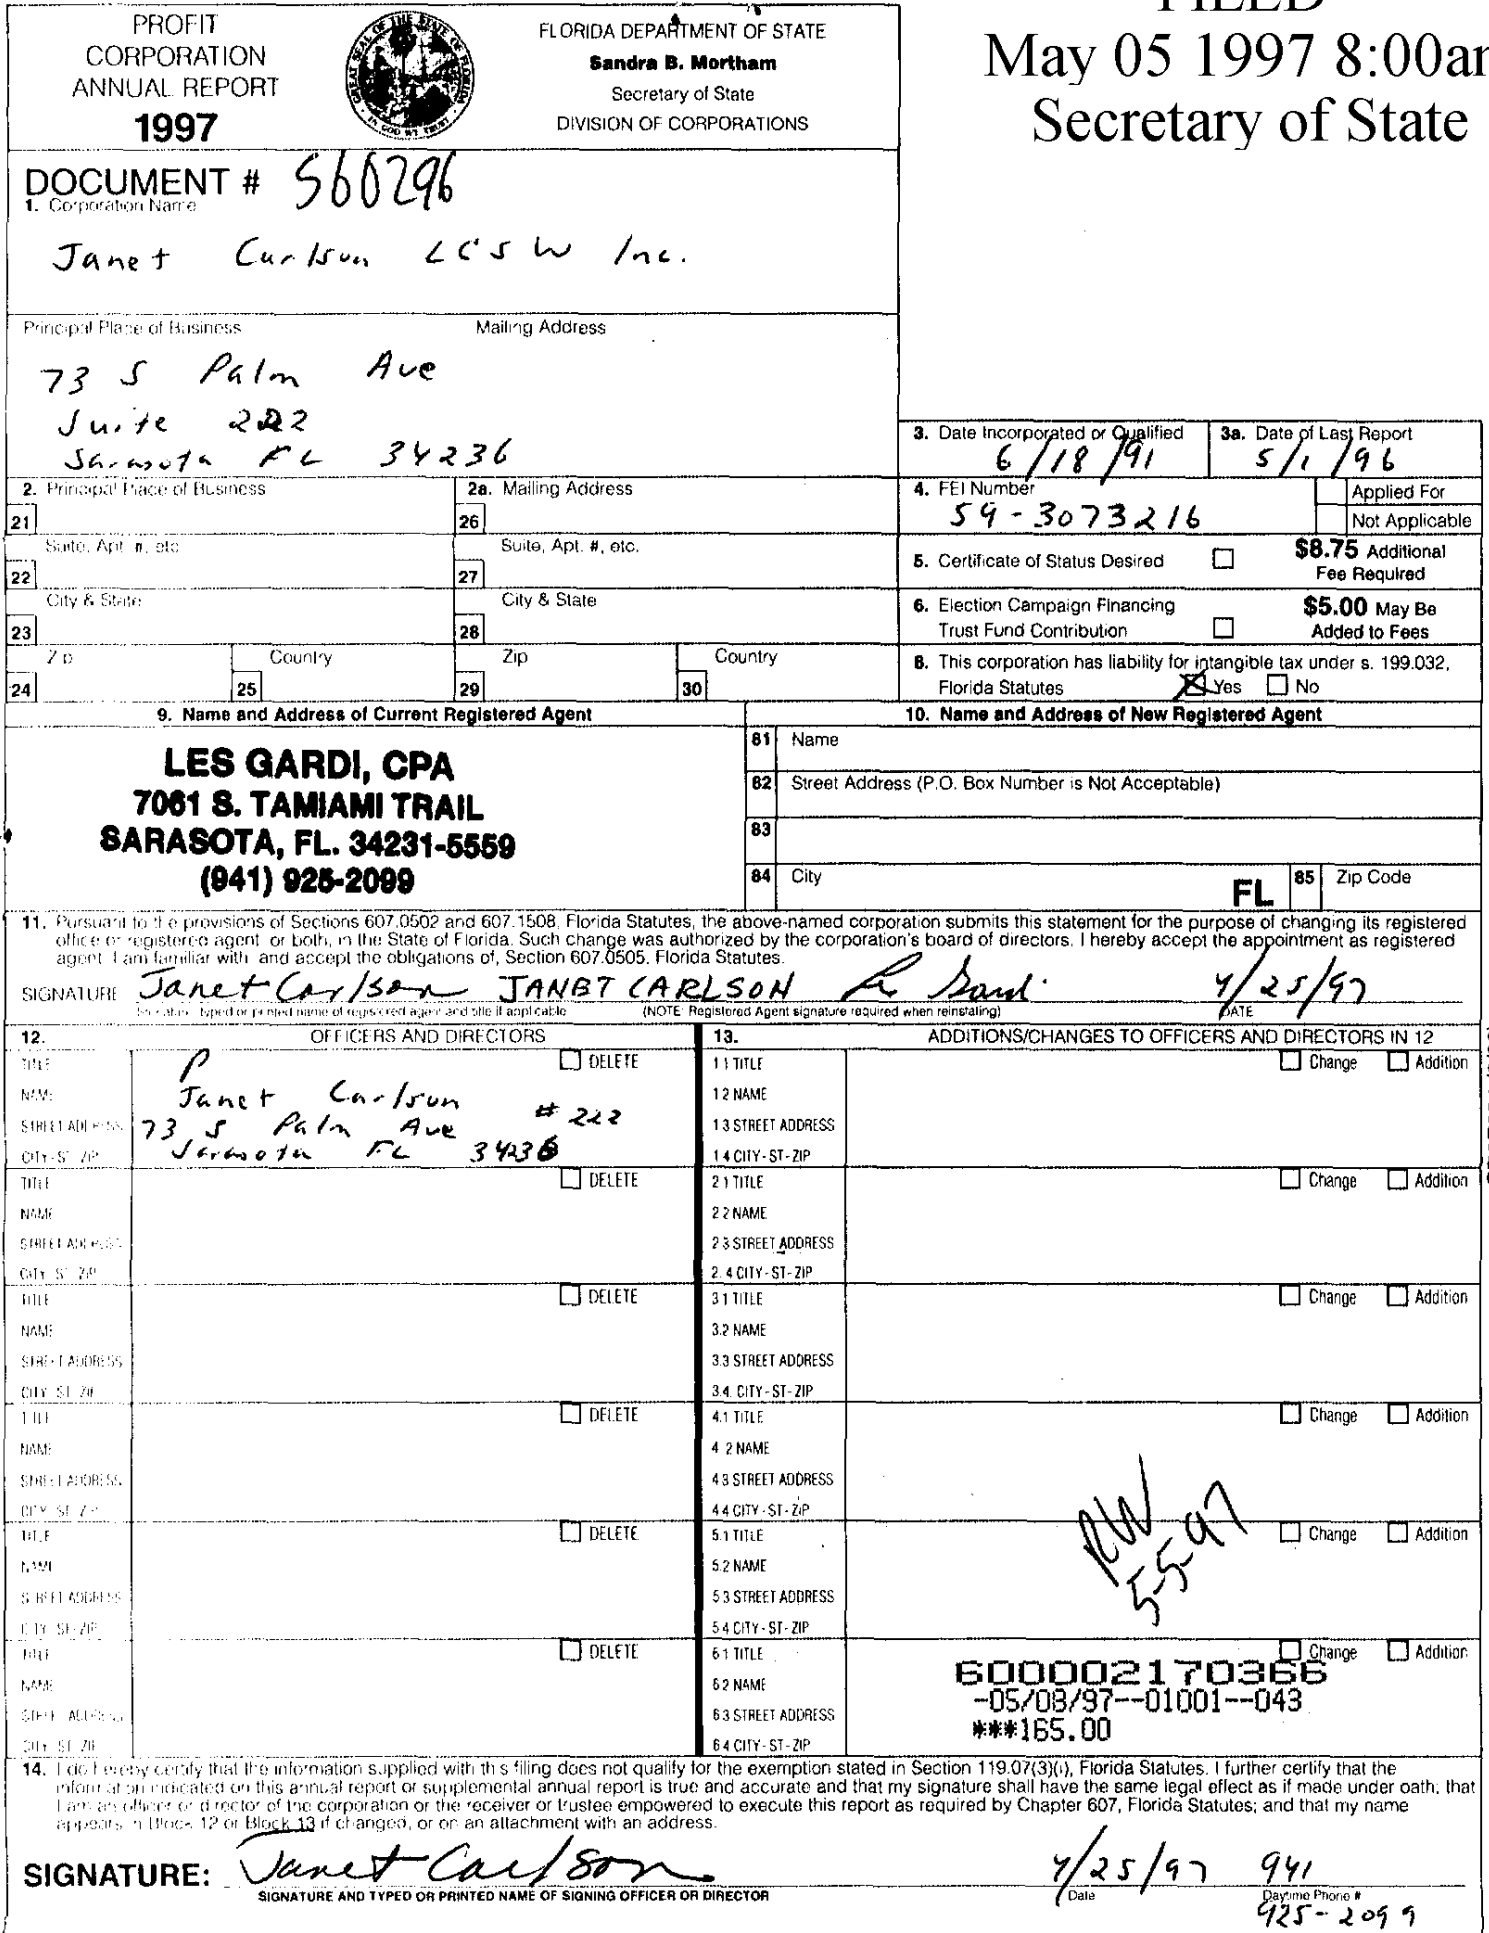 PROFIT
CORPORATION
ANNUAL REPORT
1997
FLORIDA DEPARTMENT OF STATE
Sandra B. Mortham
Secretary of State
DIVISION OF CORPORATIONS
FILED
May 05 1997 8:00am
Secretary of State
DOCUMENT # S60296
1. Corporation Name
Janet Carlson LCSW Inc.
Principal Place of Business
Mailing Address
73 S Palm Ave
Suite 222
Sarasota FL 34236
3. Date Incorporated or Qualified
6/18/91
3a. Date of Last Report
5/1/96
2. Principal Place of Business
2a. Mailing Address
4. FEI Number
59-3073216
Applied For
Not Applicable
21
26
Suite, Apt. #, etc.
Suite, Apt. #, etc.
22
27
5. Certificate of Status Desired
$8.75 Additional
Fee Required
City & State
City & State
23
28
6. Election Campaign Financing
Trust Fund Contribution
$5.00 May Be
Added to Fees
Zip
Country
Zip
Country
24
25
29
30
8. This corporation has liability for intangible tax under s. 199.032,
Florida Statutes Yes No
9. Name and Address of Current Registered Agent
10. Name and Address of New Registered Agent
LES GARDI, CPA
7061 S. TAMIAMI TRAIL
SARASOTA, FL. 34231-5559
(941) 925-2099
81 Name
82 Street Address (P.O. Box Number is Not Acceptable)
83
84 City
FL
85 Zip Code
11. Pursuant to the provisions of Sections 607.0502 and 607.1508, Florida Statutes, the above-named corporation submits this statement for the purpose of changing its registered
office or registered agent, or both, in the State of Florida. Such change was authorized by the corporation's board of directors. I hereby accept the appointment as registered
agent. I am familiar with, and accept the obligations of, Section 607.0505, Florida Statutes.
SIGNATURE Janet Carlson JANET CARLSON 4/25/97
Signature, typed or printed name of registered agent and title if applicable
(NOTE: Registered Agent signature required when reinstating)
DATE
12. OFFICERS AND DIRECTORS
13. ADDITIONS/CHANGES TO OFFICERS AND DIRECTORS IN 12
TITLE P DELETE
NAME Janet Carlson
STREET ADDRESS 73 S Palm Ave # 222
CITY-ST-ZIP Sarasota FL 34236
1 1 TITLE Change Addition
1 2 NAME
1 3 STREET ADDRESS
1 4 CITY-ST-ZIP
TITLE DELETE
NAME
STREET ADDRESS
CITY-ST-ZIP
2 1 TITLE Change Addition
2 2 NAME
2 3 STREET ADDRESS
2. 4 CITY-ST-ZIP
TITLE DELETE
NAME
STREET ADDRESS
CITY-ST-ZIP
3 1 TITLE Change Addition
3.2 NAME
3.3 STREET ADDRESS
3.4. CITY-ST-ZIP
TITLE DELETE
NAME
STREET ADDRESS
CITY-ST-ZIP
4.1 TITLE Change Addition
4 2 NAME
4 3 STREET ADDRESS
4 4 CITY-ST-ZIP
RW
5-5-97
TITLE DELETE
NAME
STREET ADDRESS
CITY-ST-ZIP
5.1 TITLE Change Addition
5.2 NAME
5 3 STREET ADDRESS
5 4 CITY-ST-ZIP
TITLE DELETE
NAME
STREET ADDRESS
CITY-ST-ZIP
6 1 TITLE Change Addition
6 2 NAME
6 3 STREET ADDRESS
6 4 CITY-ST-ZIP
600002170366
-05/08/97--01001--043
***165.00
14. I do hereby certify that the information supplied with this filing does not qualify for the exemption stated in Section 119.07(3)(i), Florida Statutes. I further certify that the
information indicated on this annual report or supplemental annual report is true and accurate and that my signature shall have the same legal effect as if made under oath; that
I am an officer or director of the corporation or the receiver or trustee empowered to execute this report as required by Chapter 607, Florida Statutes; and that my name
appears in Block 12 or Block 13 if changed, or on an attachment with an address.
SIGNATURE: Janet Carlson 4/25/97 941
SIGNATURE AND TYPED OR PRINTED NAME OF SIGNING OFFICER OR DIRECTOR
Date
Daytime Phone #
925-2099